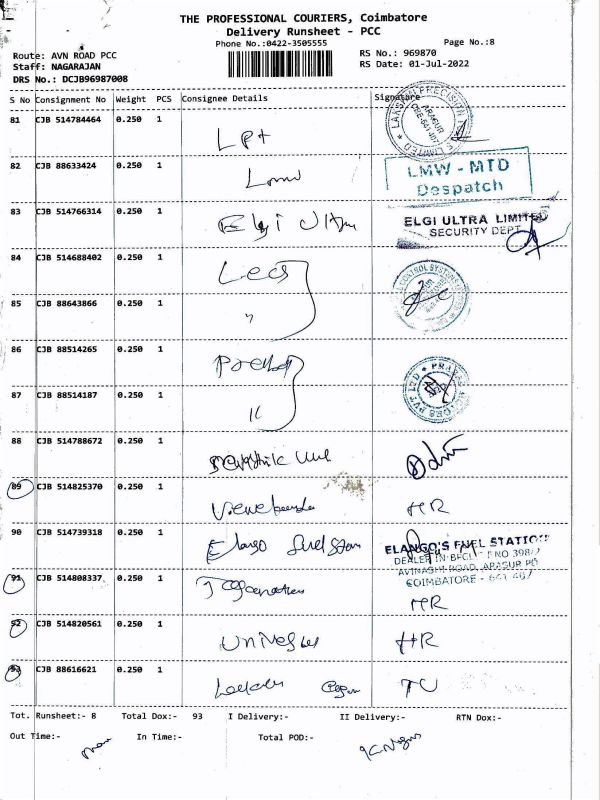 THE PROFESSIONAL COURIERS, Coimbatore
Delivery Runsheet - PCC
Phone No.:0422-3505555
Page No.:8
Route: AVN ROAD PCC
RS No.: 969870
Staff: NAGARAJAN
RS Date: 01-Jul-2022
DRS No.: DCJB96987008
S No Consignment No Weight PCS Consignee Details Signature
81 CJB 514784464 0.250 1 LPT
82 CJB 88633424 0.250 1
LMW - MTD
Despatch
83 CJB 514766314 0.250 1 Elgi Ultra
ELGI ULTRA LIMITED
SECURITY DEPT
84 CJB 514688402 0.250 1 Lecs
85 CJB 88643866 0.250 1 "
86 CJB 88514265 0.250 1
87 CJB 88514187 0.250 1 "
88 CJB 514788672 0.250 1
89 CJB 514825370 0.250 1 HR
90 CJB 514739318 0.250 1 Elango
ELANGO'S FUEL STATION
AVINASHI ROAD, ARASUR PO
COIMBATORE - 641 407
91 CJB 514808337 0.250 1 HR
92 CJB 514820561 0.250 1 HR
93 CJB 88616621 0.250 1
Tot. Runsheet:- 8 Total Dox:- 93 I Delivery:- II Delivery:- RTN Dox:-
Out Time:- In Time:- Total POD:-